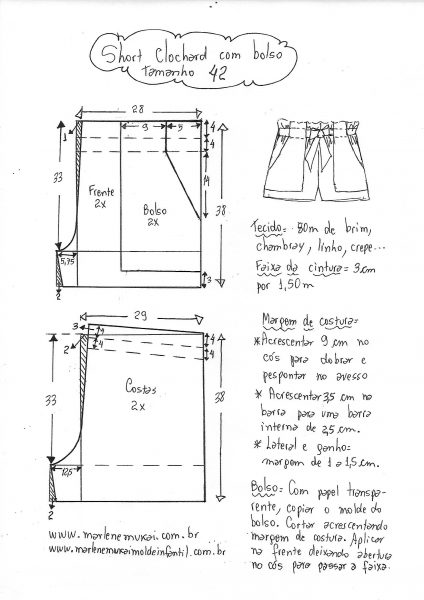 Short Clochard com bolso
Tamanho 42
28
9
5
4
4
1
33
Frente
2x
Bolso
2x
14
38
5,75
3
2
29
3
4
4
4
4
2
33
Costas
2x
38
12,5
2
www.marlenemukai.com.br
www.marlenemukaimoldeinfantil.com.br
Tecido= 80m de brim,
chambray, linho, crepe...
Faixa da cintura= 3cm
por 1,50m
Margem de costura=
*Acrescentar 9 cm no
cós para dobrar e
pespontar no avesso
* Acrescentar 3,5 cm na
barra para uma barra
interna de 2,5 cm.
* Lateral e ganho=
margem de 1 a 1,5cm.
Bolso= Com papel transpa-
rente, copiar o molde do
bolso. Cortar acrescentando
margem de costura. Aplicar
na frente deixando abertura
no cós para passar a faixa.